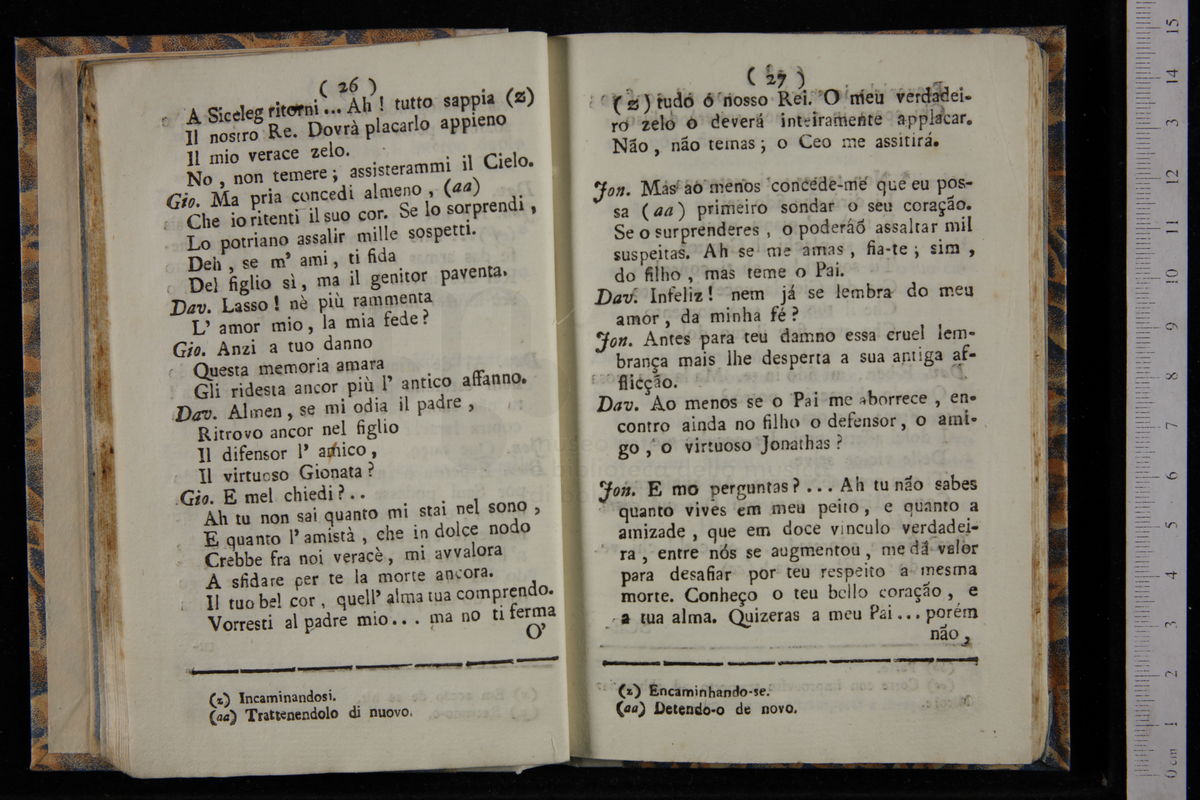 ( 26 )
A Siceleg ritorni... Ah ! tutto sappia (z)
Il nostro Re. Dovrà placarlo appieno
Il mio verace zelo.
No , non temere ; assisterammi il Cielo.
Gio. Ma pria concedi almeno , (aa)
Che io ritenti il suo cor. Se lo sorprendi ,
Lo potriano assalir mille sospetti.
Deh , se m' ami , ti fida
Del figlio sì , ma il genitor paventa.
Dav. Lasso ! nè più rammenta
L' amor mio , la mia fede ?
Gio. Anzi a tuo danno
Questa memoria amara
Gli ridesta ancor più l' antico affanno.
Dav. Almen , se mi odia il padre ,
Ritrovo ancor nel figlio
Il difensor l' amico ,
Il virtuoso Gionata ?
Gio. E mel chiedi ? . .
Ah tu non sai quanto mi stai nel sono ,
E quanto l' amistà , che in dolce nodo
Crebbe fra noi veracè , mi avvalora
A sfidare per te la morte ancora.
Il tuo bel cor , quell' alma tua comprendo.
Vorresti al padre mio... ma no ti ferma
O'
(z) Incaminandosi.
(aa) Trattenendolo di nuovo.
( 27 )
(z) tudo o nosso Rei. O meu verdadei-
ro zelo o deverá inteiramente applacar.
Não , não temas ; o Ceo me assitirá.
Jon. Mas ao menos concede-me que eu pos-
sa (aa) primeiro sondar o seu coração.
Se o surprenderes , o poderáõ assaltar mil
suspeitas. Ah se me amas , fia-te ; sim ,
do filho , mas teme o Pai.
Dav. Infeliz ! nem já se lembra do meu
amor , da minha fé ?
Jon. Antes para teu damno essa cruel lem-
brança mais lhe desperta a sua antiga af-
flicção.
Dav. Ao menos se o Pai me aborrece , en-
contro ainda no filho o defensor , o ami-
go , o virtuoso Jonathas ?
Jon. E mo perguntas ? ... Ah tu não sabes
quanto vives em meu peito , e quanto a
amizade , que em doce vinculo verdadei-
ra , entre nós se augmentou , me dá valor
para desafiar por teu respeito a mesma
morte. Conheço o teu bello coração , e
a tua alma. Quizeras a meu Pai ... porém
não ,
(z) Encaminhando-se.
(aa) Detendo-o de novo.